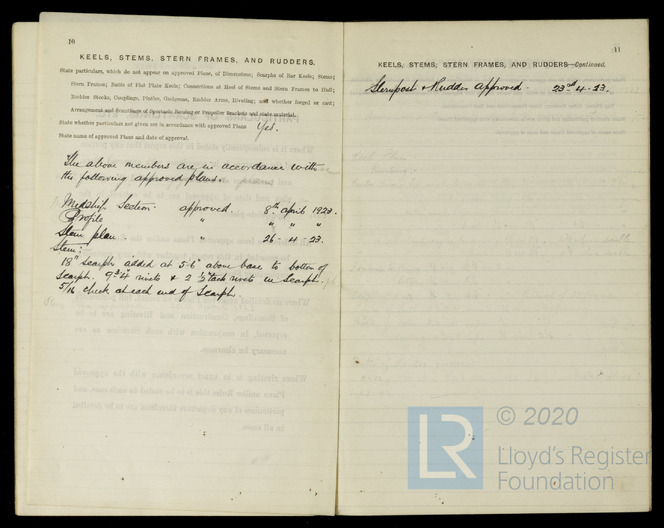 10
KEELS, STEMS, STERN FRAMES, AND RUDDERS.
State particulars, which do not appear on approved Plans, of Dimensions; Scarphs of Bar Keels; Stems;
Stern Frames; Butts of Flat Plate Keels; Connections at Heel of Stems and Stern Frames to Hull;
Rudder Stocks, Couplings, Pintles, Gudgeons, Rudder Arms, Riveting; and whether forged or cast;
Arrangement and Scantlings of Spectacle Bossing or Propeller Brackets and state material.
State whether particulars not given are in accordance with approved Plans Yes.
State name of approved Plans and date of approval.
The above members are in accordance with
the following approved plans.
Midship Section approved. 8th April 1923.
Profile " " " "
Stem plan " 26 · 4 · 23.
Stem:
18" scarph added at 5-6 above base to bottom of
scarph. rivets & 2 tack rivets in scarph.
5/16 check at each end of scarph.
11
KEELS, STEMS, STERN FRAMES, AND RUDDERS—Continued.
Sternpost & Rudder approved. 23rd · 4 · 23.
LR
© 2020
Lloyd's Register
Foundation